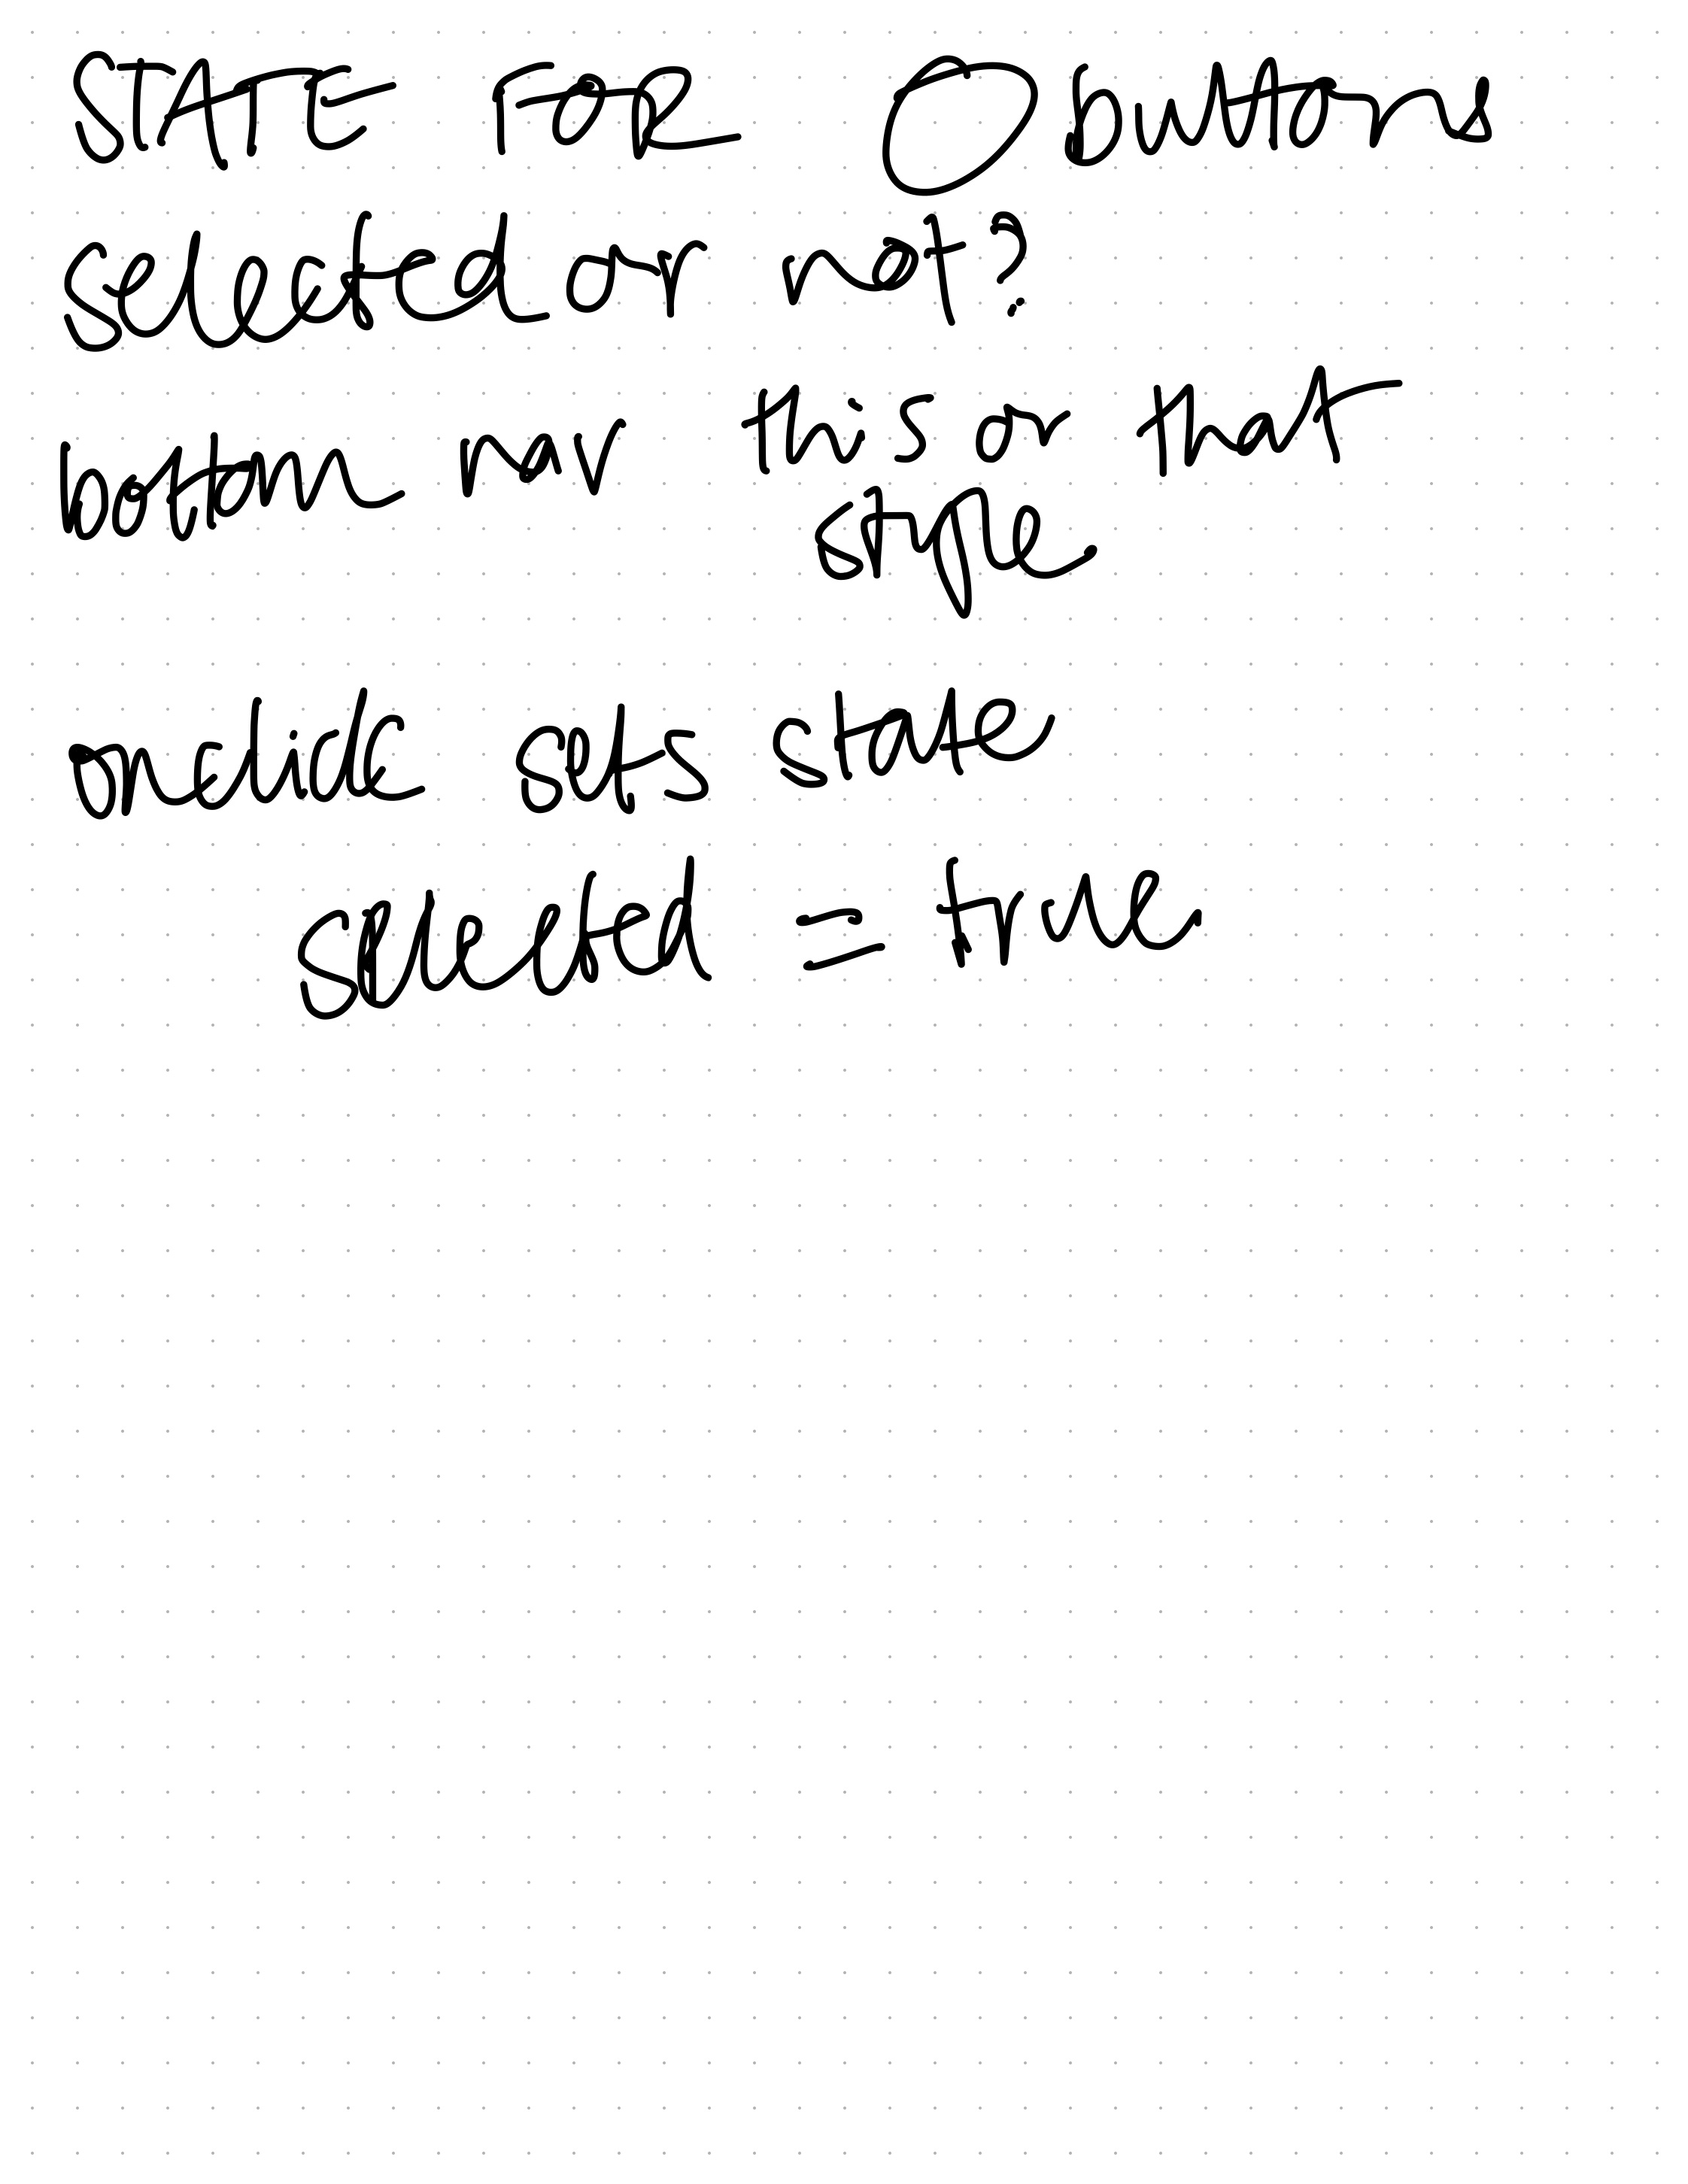 STATE FOR O buttons
selected or not?
bottom nav this or that
style
onclick sets state
selected = true